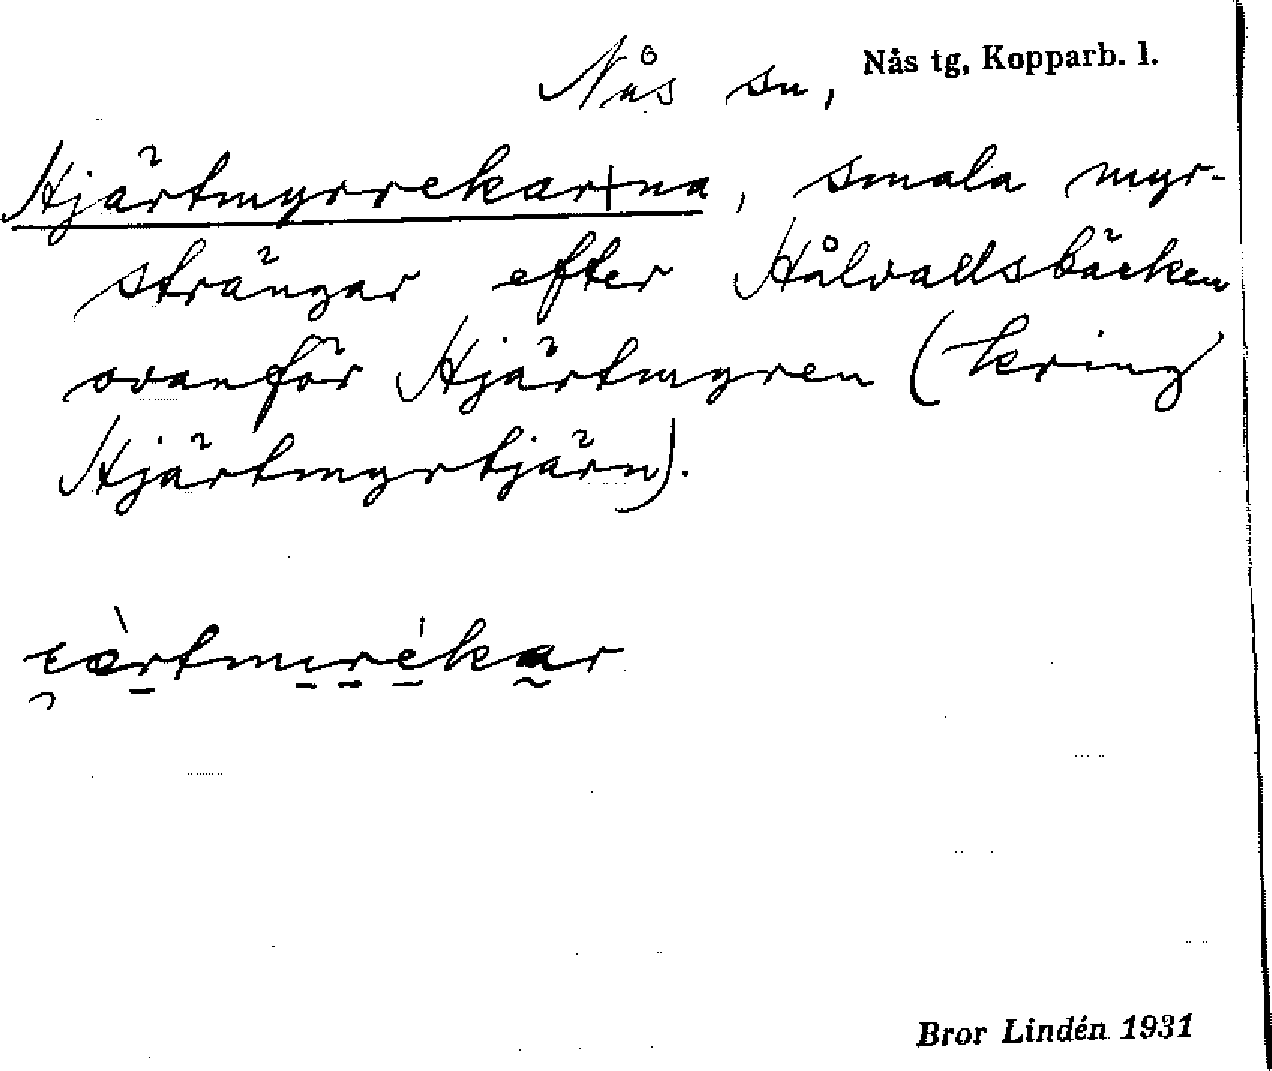 Nås sn, Nås tg, Kopparb. l.
Hjärtmyrrekar+na, smala myr-
strängar efter Hålvallsbäcken
ovanför Hjärtmyren (kring
Hjärtmyrtjärn).
Bror Lindén 1931